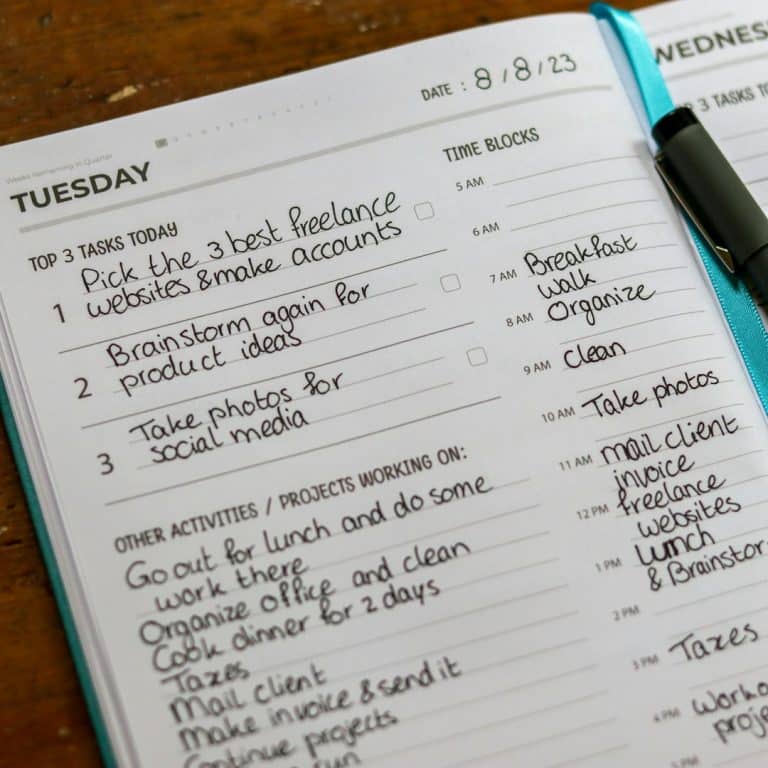 Weeks Remaining in Quarter
TUESDAY
DATE : 8 / 8 / 23
TOP 3 TASKS TODAY
1 Pick the 3 best freelance
websites & make accounts
2 Brainstorm again for
product ideas
3 Take photos for
social media
OTHER ACTIVITIES / PROJECTS WORKING ON:
Go out for lunch and do some
work there
Organize office and clean
Cook dinner for 2 days
Taxes
Mail client
Make invoice & send it
Continue projects
run
TIME BLOCKS
5 AM
6 AM
7 AM Breakfast
walk
8 AM Organize
9 AM Clean
10 AM Take photos
11 AM mail client
invoice
12 PM freelance
websites
1 PM Lunch
& Brainstor
2 PM
3 PM Taxes
4 PM Worko
proje
5 PM
WEDNES
3 TASKS TO